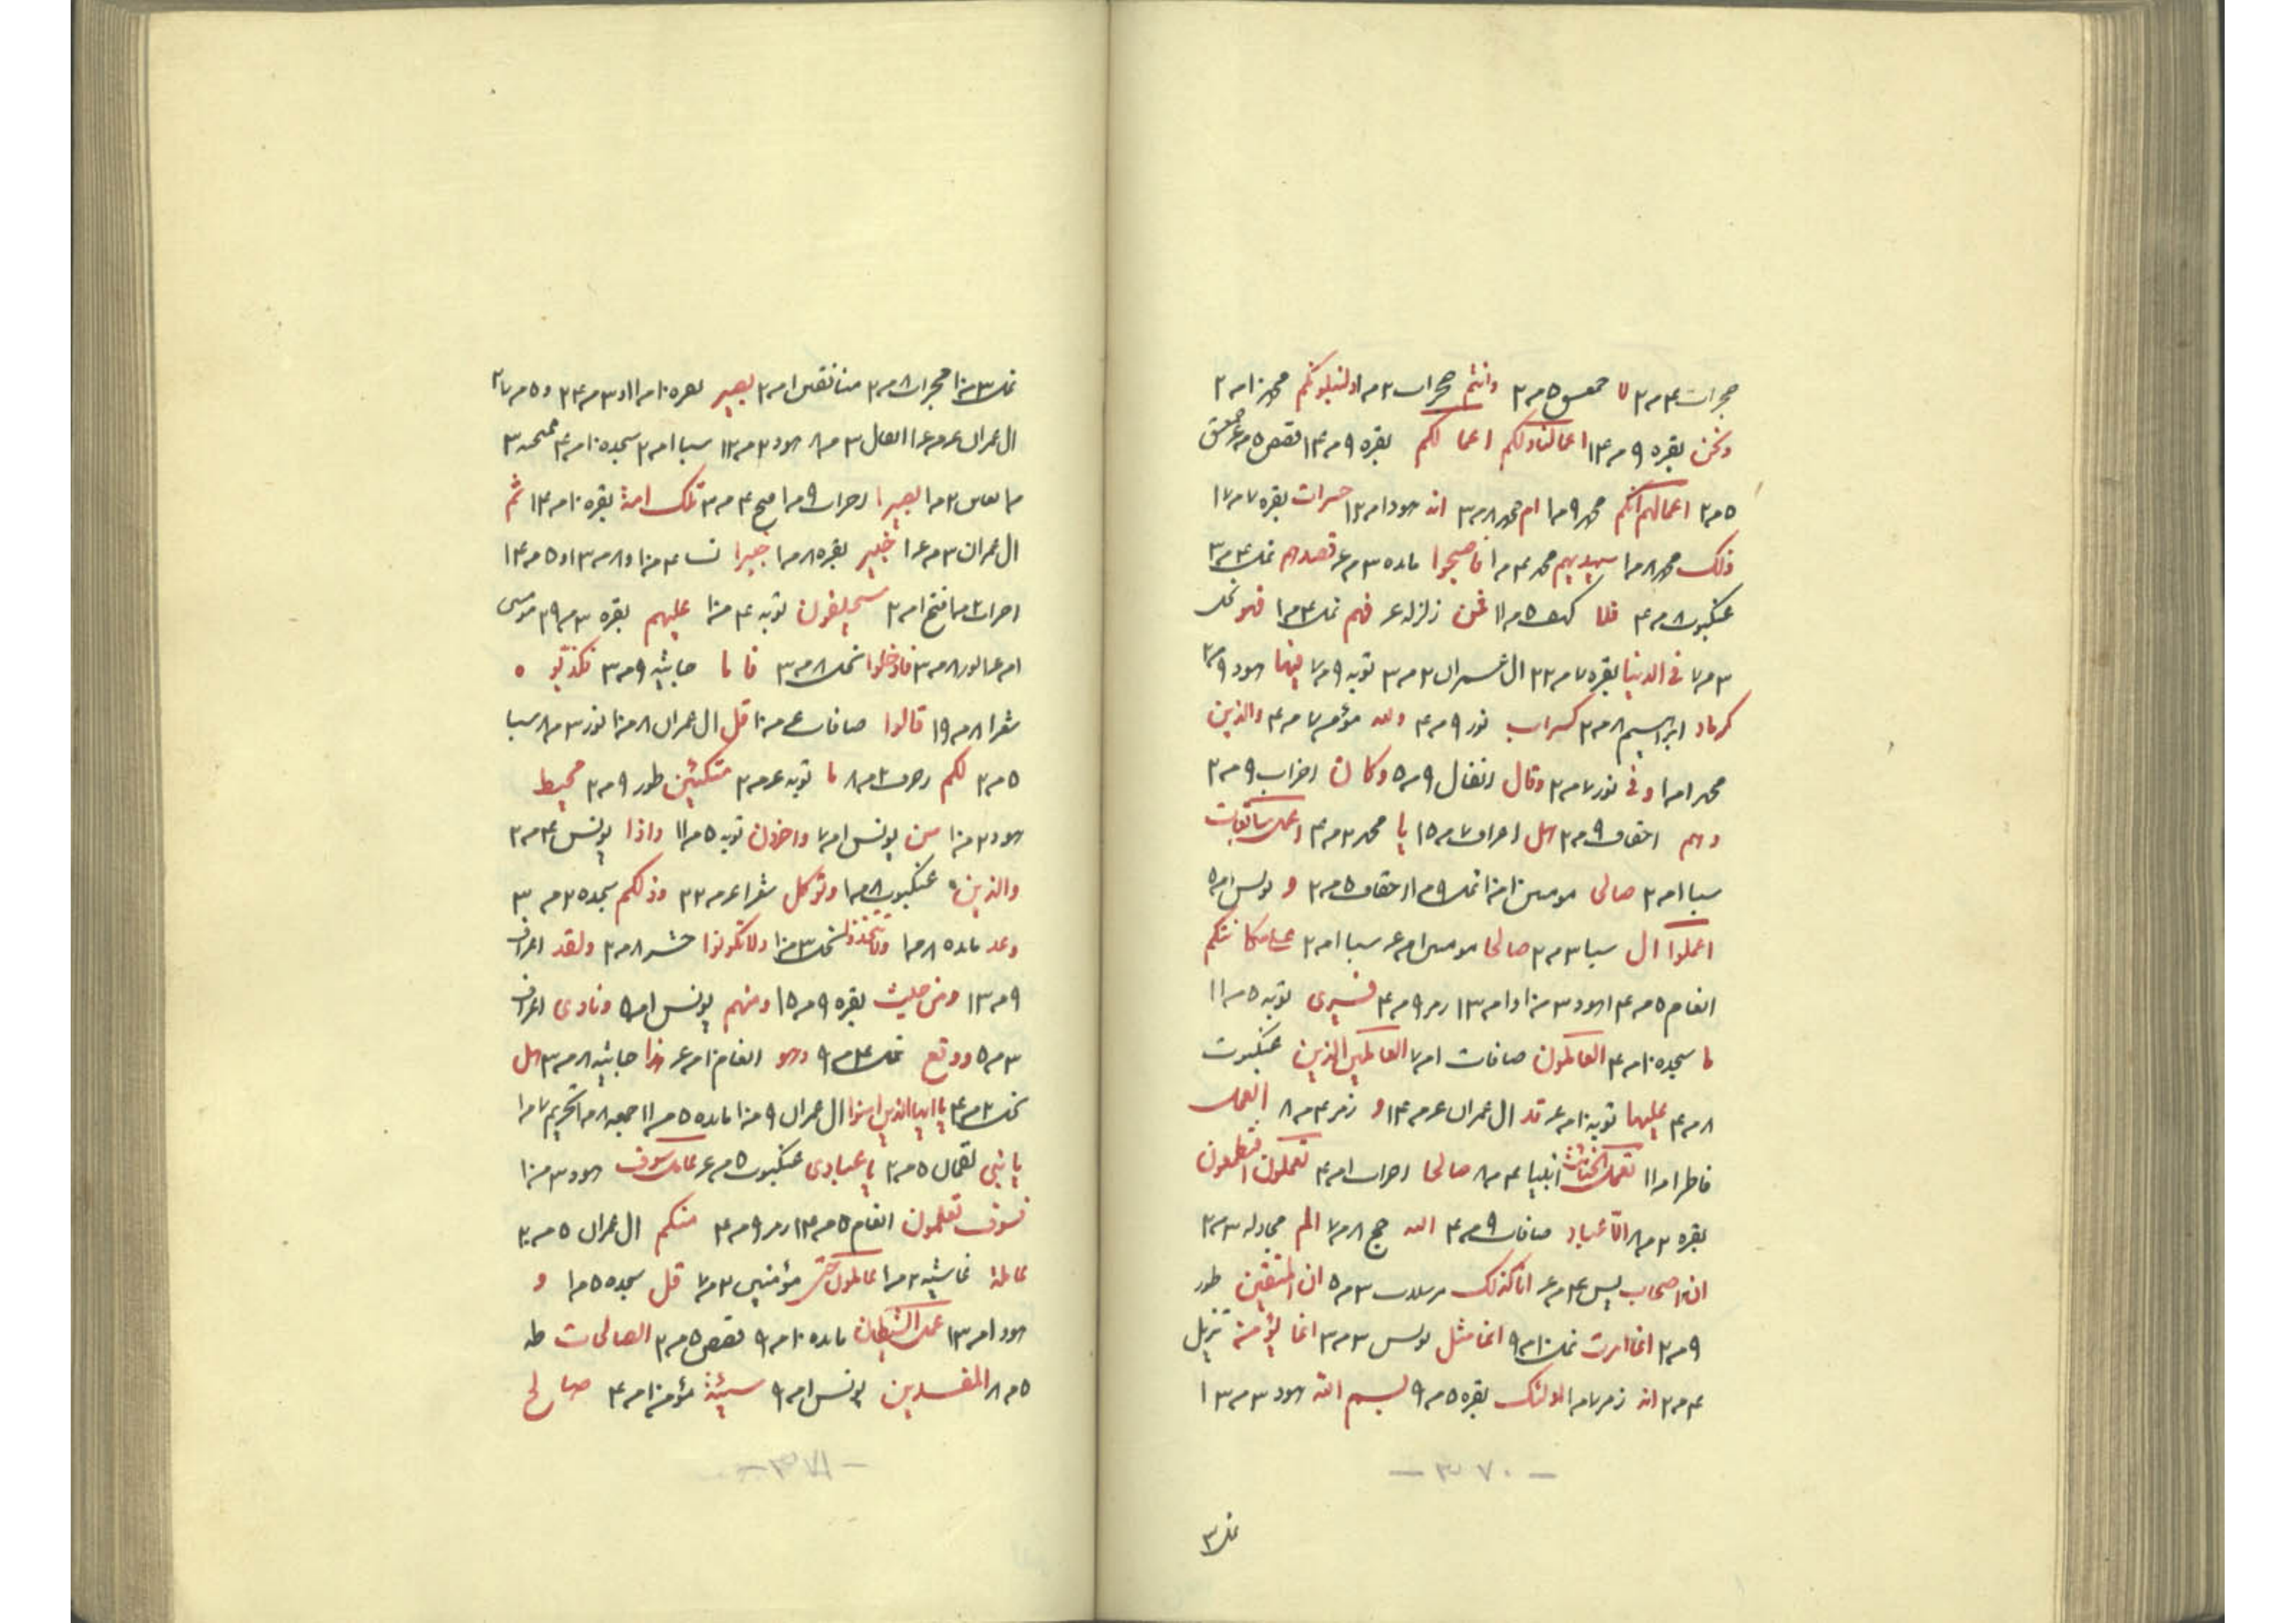 حجرات ۴ م ۲ لا حمعسق ۵ م ۲ وانتم حجرات ۲ م ا ولنبلونكم محمد ۱۰ م ۳
ونحن بقره ۹ م ۱۴ اعمالنا ولكم اعمالكم بقره ۹ م ۱۴ قصص ۵ م ۶ حمعسق
۵ م ۲ اعمالهم انكم محمد ۹ م ۱ ام محمد ۸ م ۳ انه هود ۱ م ۱۲ حسرات بقره ۷ م ۱۷
ذلك محمد ۸ م ۱ سيهديهم محمد ۴ م ۱ فاصبحوا مائده ۳ م ۶ فصدهم نمل ۴ م ۳
عنكبوت ۸ م ۴ فلا كهف ۵ م ۱۱ فمن زلزله ۶ فهم نمل ۴ م ۱ فهو نحل
۳ م ۷ فى الدنيا بقره ۷ م ۲۲ ال عمران ۲ م ۳ توبه ۹ م ۷ فيها هود ۹ م ۲
كرماد ابراهيم ۸ م ۲ كسراب نور ۹ م ۴ والله مؤمن ۷ م ۴ والذين
محمد ۱ م ۱ وفى نور ۷ م ۲ وقال انفال ۹ م ۵ وكان احزاب ۹ م ۲
وهم احقاف ۹ م ۲ هل اعراف ۷ م ۱۵ يا محمد ۳ م ۴ اعمل سابغات
سبا ۱ م ۲ صالحا مومنين ۱ م ۱ نمل ۹ م ۱ احقاف ۵ م ۲ و يونس ۱ م ۵
اعملوا ال سبا ۳ م ۲ صالحا مومنين ۱ م ۶ سبا ۱ م ۲ على مكانتكم
انعام ۵ م ۱۴ هود ۳ م ۱۰ و ۱ م ۱۳ زمر ۹ م ۴ فسيرى توبه ۵ م ۱۱
ما سجده ۱۰ م ۴ العاملون صافات ۱ م ۷ العاملين الذين عنكبوت
۸ م ۴ عليها توبه ۱۰ م ۶ قد ال عمران ۶ م ۱۴ و زمر ۴ م ۸ العمل
فاطر ۱ م ۱۱ تعمل الخبائث انبيا ۴ م ۸ صالحا احزاب ۱ م ۴ تعملون افتطمعون
بقره ۳ م ۸ الا عباد صافات ۹ م ۴ الله حج ۸ م ۷ الم مجادله ۳ م ۲
ان اصحاب يس ۴ م ۶ انا كذلك مرسلات ۳ م ۵ ان المتقين طور
۹ م ۲ انما امرت نمل ۱۰ م ۹ انما مثل يونس ۳ م ۳ انما يؤمن تنزيل
۴ م ۲ انه زمر ۷ م ۱ اولئك بقره ۵ م ۹ بسم الله هود ۳ م ۱۳
— ۳۷۰ —
نمل ۳
نمل ۳ م ۱۰ حجرات ۸ م ۲ منافقين ۱ م ۲ بصير بقره ۱۰ م ۱۱ و ۳ م ۲۴ و ۵ م ۲۷
ال عمران ۶ م ۱۶ انفال ۳ م ۸ هود ۲ م ۱۲ سبا ۱ م ۲ سجده ۱۰ م ۴ ممتحنه ۳
م ۱ تغابن ۲ م ۱ بصيرا احزاب ۹ م ۱ فتح ۴ م ۳ تلك امة بقره ۱۰ م ۱۴ ثم
ال عمران ۳ م ۱۶ خبير بقره ۸ م ۱ خبيرا نسا ۴ م ۱۰ و ۸ م ۱۳ و ۵ م ۱۴
احزاب ۲ م ۱ فتح ۱ م ۲ سيحلفون توبه ۴ م ۱۰ عليهم بقره ۳ م ۲۹ موسى
ا م ۶ نور ۸ م ۳ فادخلوا نحل ۸ م ۳ فاما جاثيه ۹ م ۳ فكذبوه
شعرا ۸ م ۱۹ قالوا صافات ۶ م ۱۰ قل ال عمران ۸ م ۱۰ نور ۳ م ۸ سبا
۵ م ۲ لكم زخرف ۲ م ۸ ما توبه ۶ م ۲ متكئين طور ۹ م ۲ محيط
هود ۲ م ۱۰ من يونس ۱ م ۷ واخرون توبه ۵ م ۱۱ واذا يونس ۴ م ۲
والذين عنكبوت ۸ م ۱ وتوكل شعرا ۶ م ۲۲ وذلكم سجده ۲۵ م ۳
وعد مائده ۸ م ۱ ولا تتخذوا نحل ۳ م ۱۰ ولا تكونوا حشر ۸ م ۲ ولقد اعراف
۹ م ۱۳ ومن حيث بقره ۹ م ۱۵ ومنهم يونس ۱ م ۵ ونادى اعراف
۳ م ۵ ووقع نمل ۴ م ۹ وهو انعام ۱۰ م ۶ هذا جاثيه ۸ م ۳ هل
نحل ۲ م ۴ يا ايها الذين امنوا ال عمران ۹ م ۱۰ مائده ۵ م ۱۱ جمعه ۸ م ۱ تحريم ۷ م ۱
يا بنى لقمان ۵ م ۲ يا عبادى عنكبوت ۵ م ۶ عامل سوف هود ۳ م ۱۰
فسوف تعلمون انعام ۵ م ۱۴ زمر ۹ م ۴ منكم ال عمران ۵ م ۲۰
عاملة غاشيه ۲ م ۱ عاملون حتى مؤمنين ۳ م ۷ قل سجده ۵ م ۱ و
هود ۱ م ۱۳ عمل الشيطان مائده ۱۰ م ۹ قصص ۵ م ۲ الصالحات طه
۵ م ۸ المفسدين يونس ۱ م ۹ سيئة مؤمن ۱۰ م ۴ صالح
— ۳۷۱ —